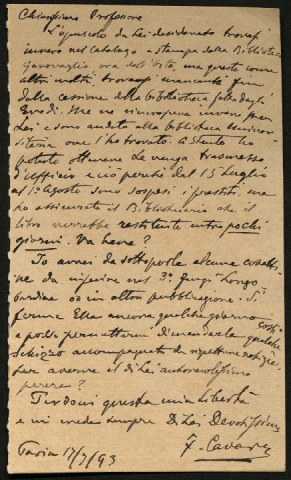 Chiarissimo Professore
L'opuscolo da Lei desiderato trovasi
invero nel Catalogo a stampa della Biblioteca
Garovaglio ora dell'Ist°, ma questo come
altri molti, trovasi mancante fin
dalla cessione della biblioteca fatta dagli
Eredi. Me ne rincresceva invero per
Lei e sono andato alla biblioteca Univer-
sitaria ove l'ho trovato. A stento ho
potuto ottenere Le venga trasmesso
d'Ufficio e ciò perché dal 15 Luglio
al 1° Agosto sono sospesi i prestiti ma
ho assicurato il Bibliotecario che il
libro verrebbe restituito entro pochi
giorni. Va bene?
Io avrei da sottoporle alcune cosette
da inferire nel 3° Funghi Longo-
bardiae od in altra pubblicazione. Si
ferma Ella ancora qualche giorno costì
e potrò permettermi di mandarle qualche
schizzo accompagnato da rispettive notizie
per averne il di Lei autorevolissimo
parere?
Perdoni questa mia libertà
e mi creda sempre Di Lei Devotissimo
F. Cavara
Pavia 17/7/93